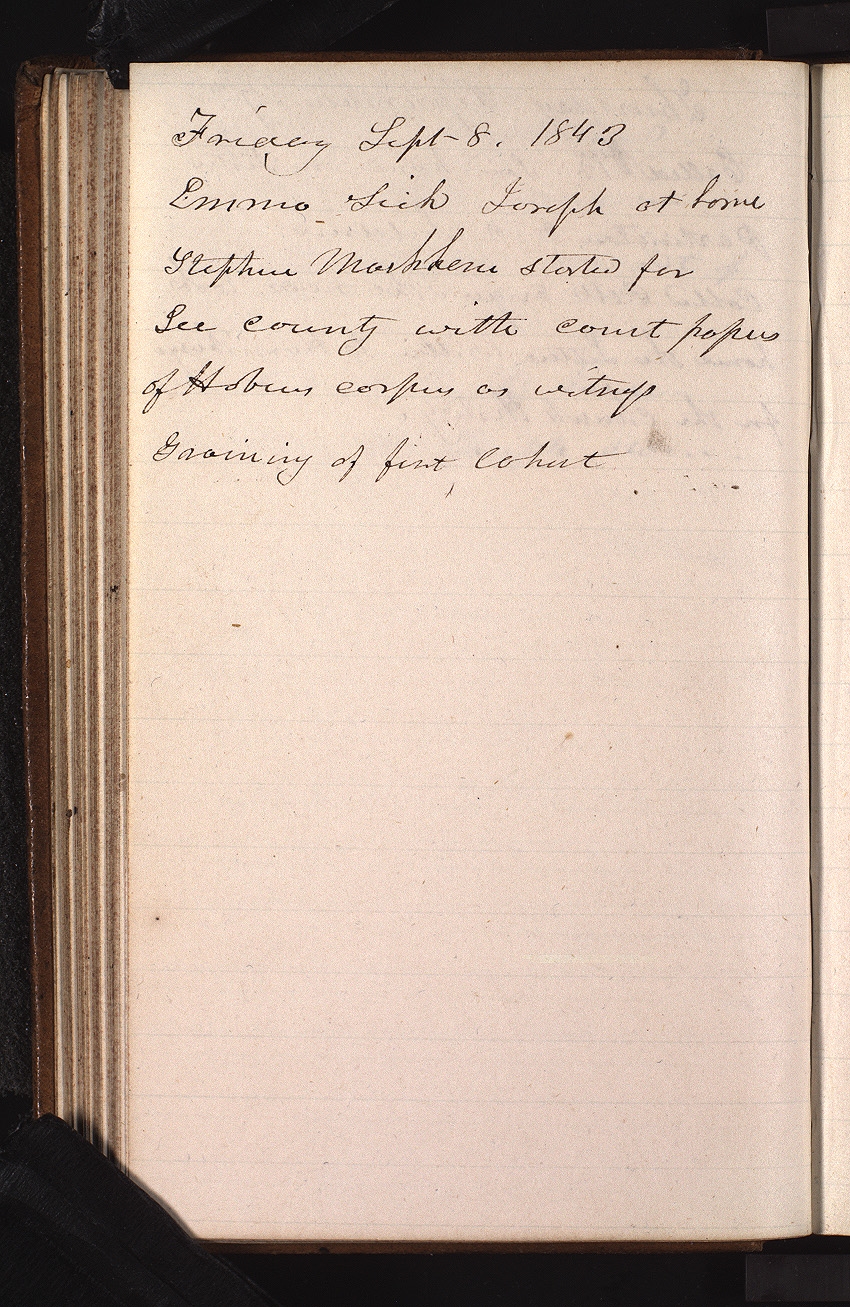 Friday Sept 8. 1843
Emma sick Joseph at home
Stephen Markham started for
Lee county with court papers
of Habeus corpus as witness
Training of first Cohort